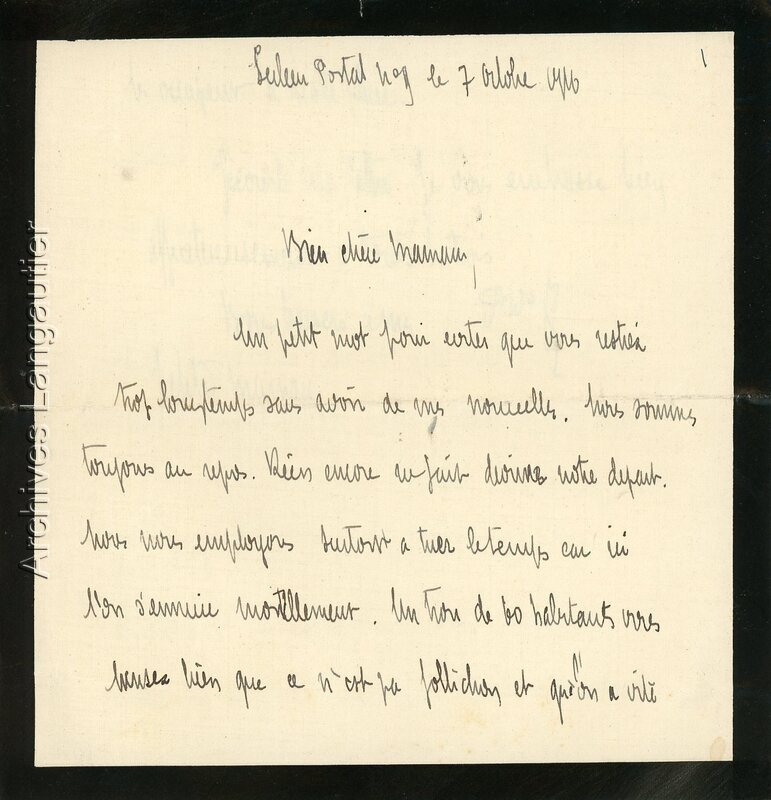 1
Secteur Postal nº 9 le 7 Octobre 1916
Bien chère Maman,
Un petit mot pour eviter que vous restiez
trop longtemps sans avoir de mes nouvelles. Nous sommes
toujours au repos. Rien encore ne fait deviner notre depart.
Nous nous employons surtout a tuer le temps car ici
l'on s'ennuie mortellement. Un trou de 60 habitants vous
pensez bien que ce n'est pas follichon et qu'l'on a vite
Archives Langautier